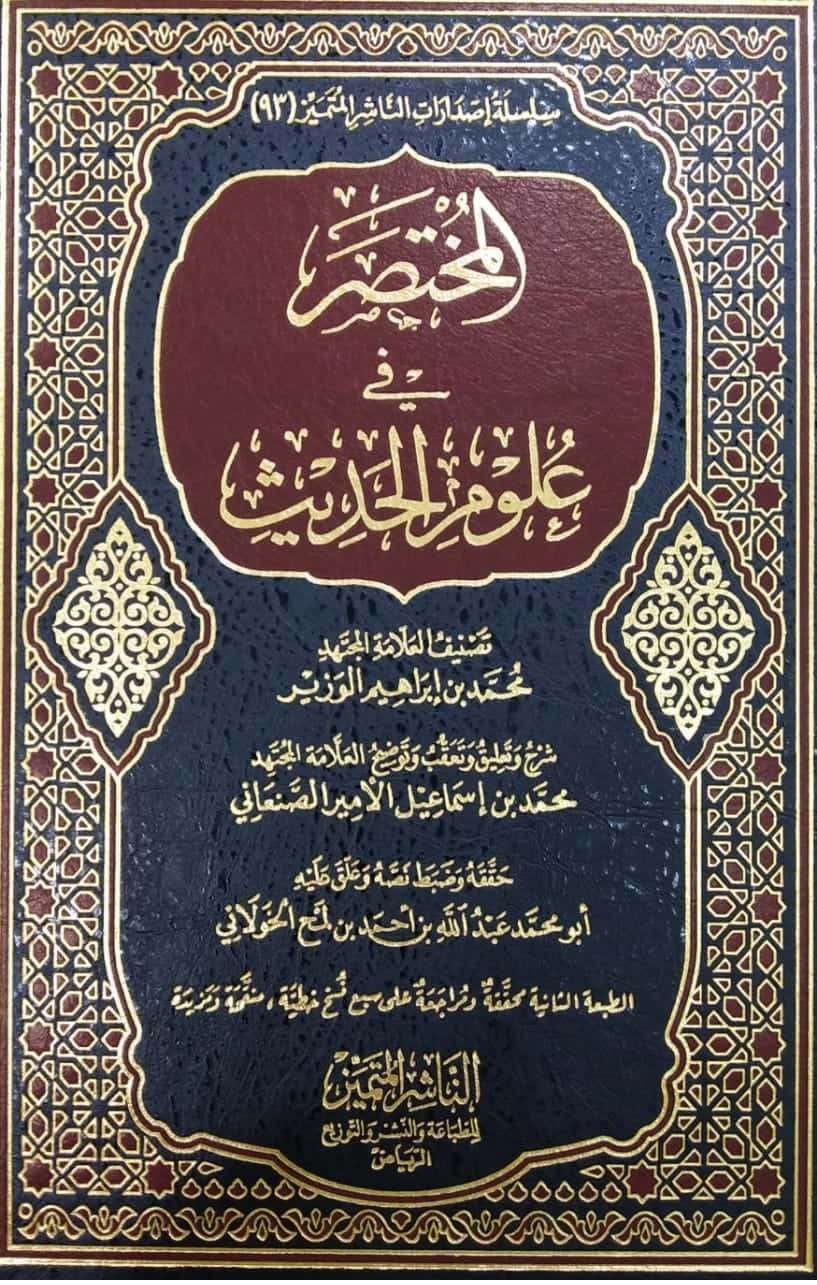 سِلْسِلَةُ إِصْدَارَاتِ النَّاشِرِ المُتَمَيِّزِ (٩٣)
المُخْتَصَر
في
عُلُوْمِ الحَدِيْثِ
تَصْنِيفُ العَلَّامَةِ المُجْتَهِدِ
مُحَمَّد بن إِبْرَاهِيم الوَزِيْر
شَرْحُ وَتَعْلِيقُ وَتَعَقُّبُ وَتَوْضِيْحُ العَلَّامَةِ المُجْتَهِدِ
محمَّد بن إِسْمَاعِيْل الأَمِيْر الصَّنْعَانِي
حَقَّقَهُ وَضَبَطَ نَصَّهُ وَعَلَّقَ عَلَيْهِ
أبو محمَّد عَبْدُ اللَّهِ بن أَحْمَد بن لَمْح الخَوْلَانِي
الطبعة الثانية محقَّقةٌ ومُرَاجَعَةٌ على سبع نُسَخٍ خطِّيَّة، منقَّحَة وَمَزِيدَة
النَّاشِرُ المُتَمَيِّزُ
لِلطِّبَاعَةِ وَالنَّشْرِ وَالتَّوْزِيعِ
الرِّيَاض